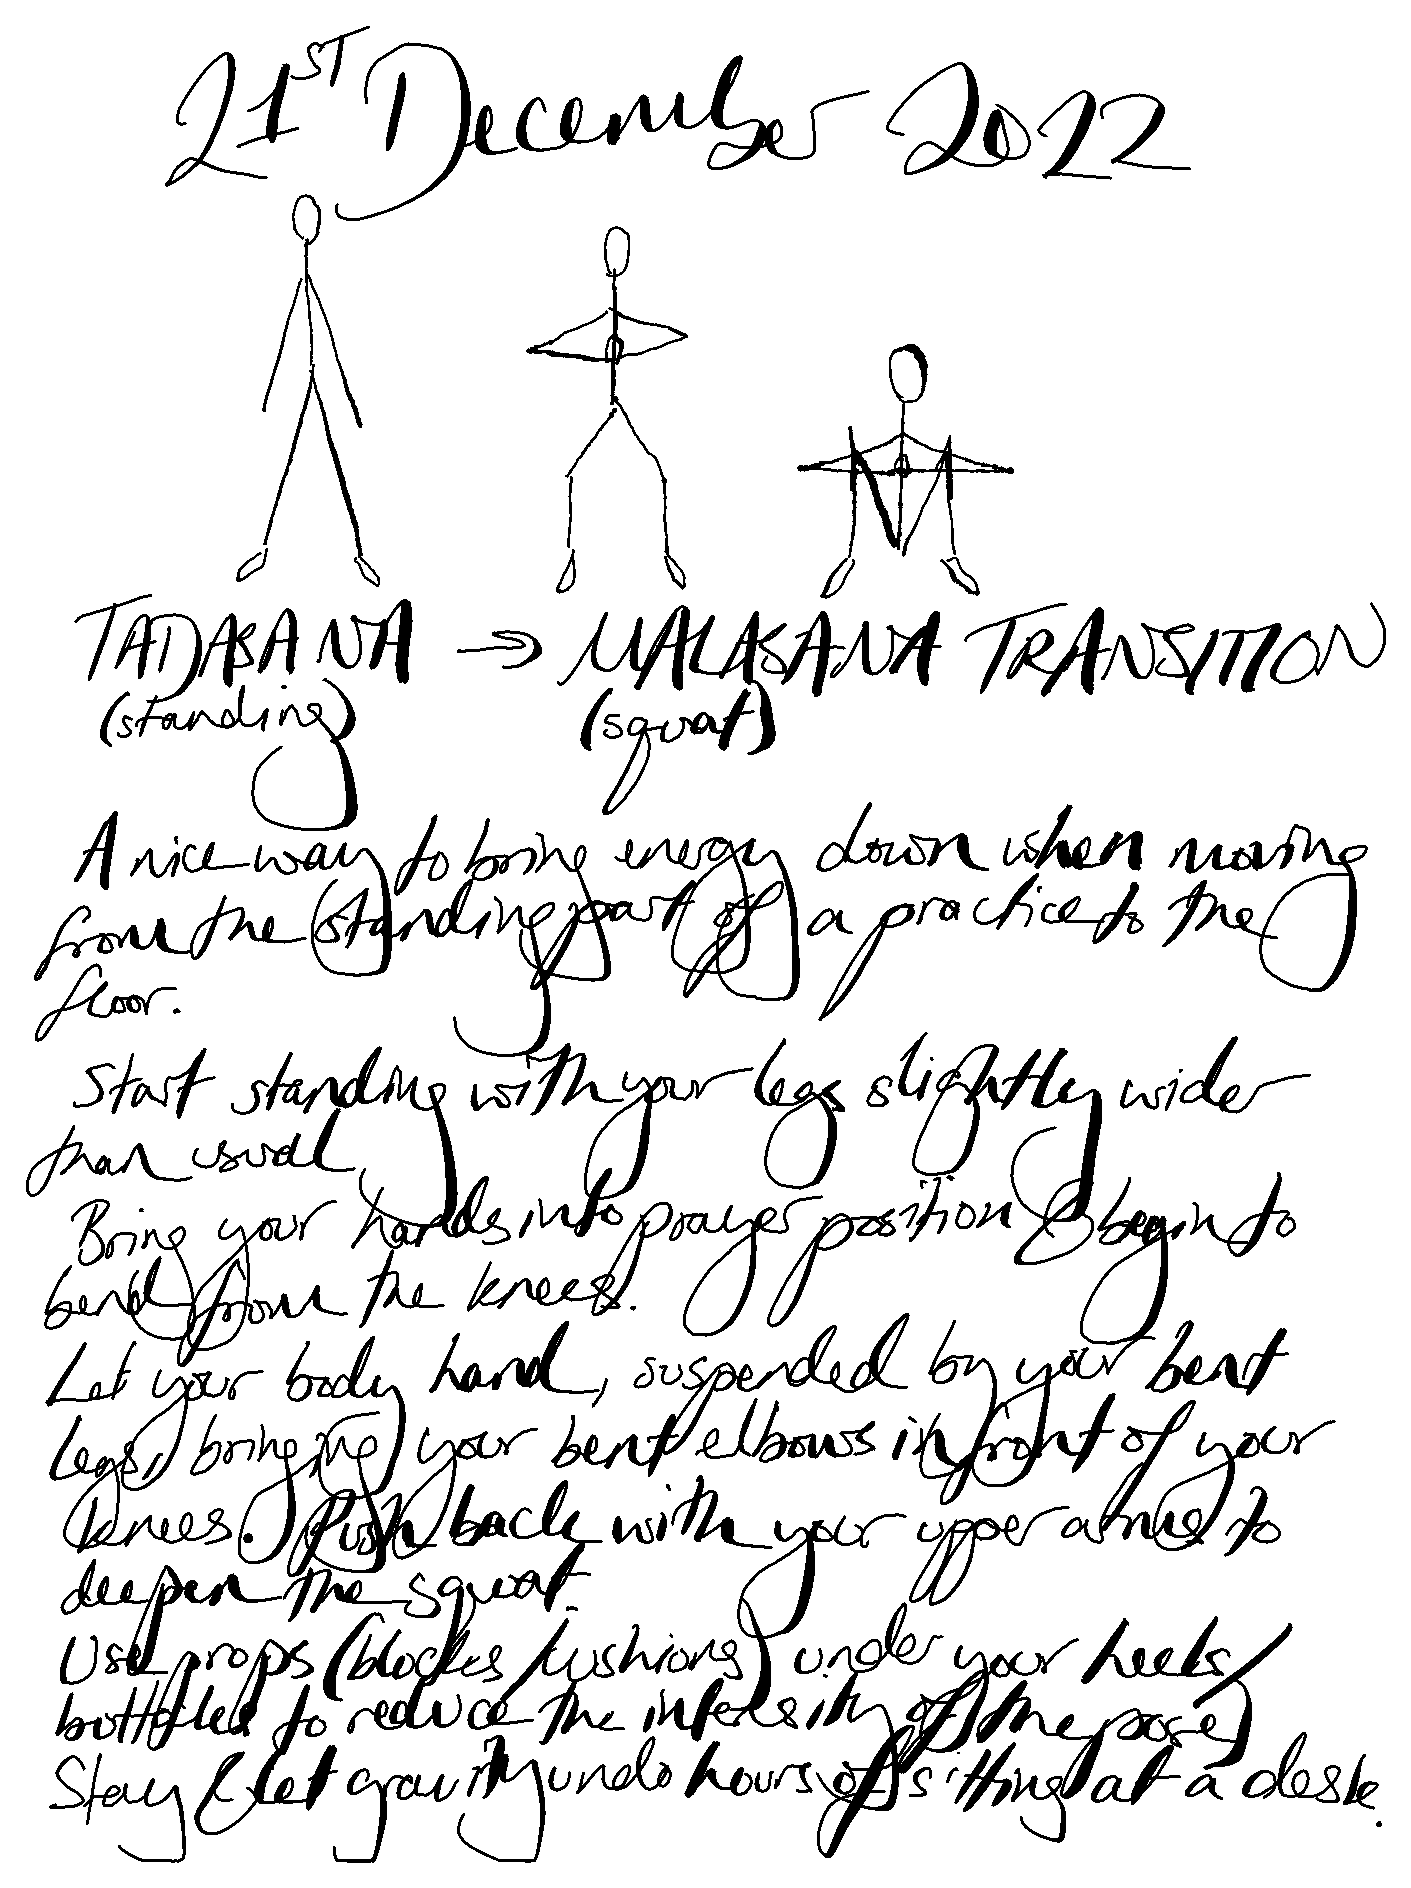 21ST December 2022
TADASANA → MALASANA TRANSITION
(standing) (squat)
A nice way to bring energy down when moving
from the standing part of a practice to the
floor.
Start standing with your legs slightly wider
than usual,
Bring your hands into prayer position & begin to
bend from the knees.
Let your body hand, suspended by your bent
legs, bringing your bent elbows in front of your
knees. Push back with your upper arms to
deepen the squat.
Use props (blocks/cushions) under your heels/
to reduce the intensity of the pose
Stay & let gravity undo hours of sitting at a desk.